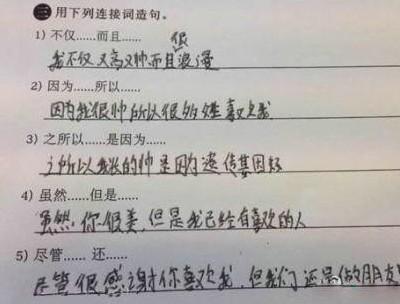 三 用下列连接词造句。
1) 不仅……而且……
很
我不仅又高又帅而且浪漫
2) 因为……所以……
因为我很帅所以很多女生喜欢我
3) 之所以……是因为……
之所以我长的帅是因为遗传基因好
4) 虽然……但是……
虽然你很美,但是我已经有喜欢的人
5) 尽管…… 还……
尽管很感谢你喜欢我,但我们还是做朋友